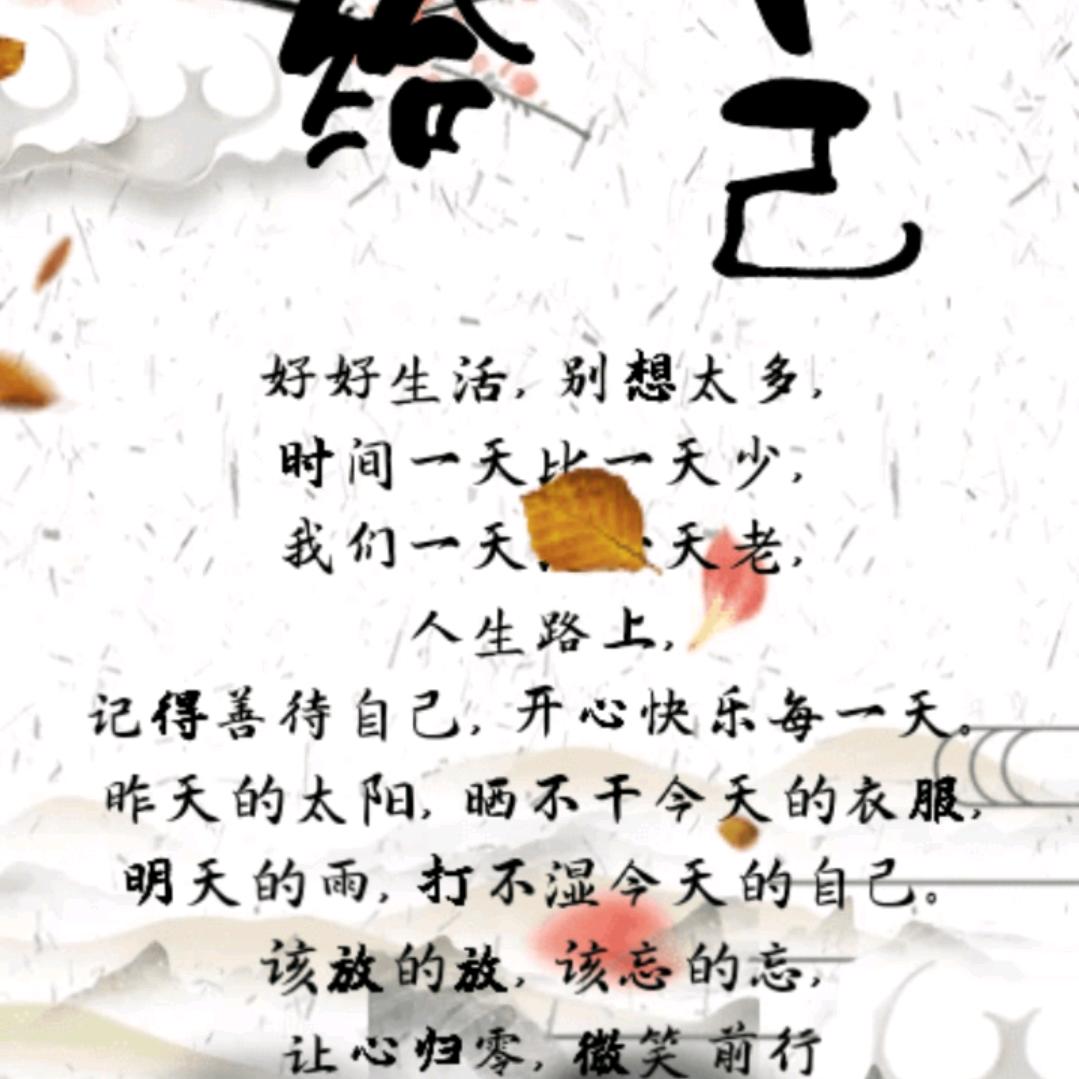 给
己
好好生活，别想太多，
时间一天比一天少，
我们一天 天老，
人生路上，
记得善待自己，开心快乐每一天。
昨天的太阳，晒不干今天的衣服，
明天的雨，打不湿今天的自己。
该放的放，该忘的忘，
让心归零，微笑前行